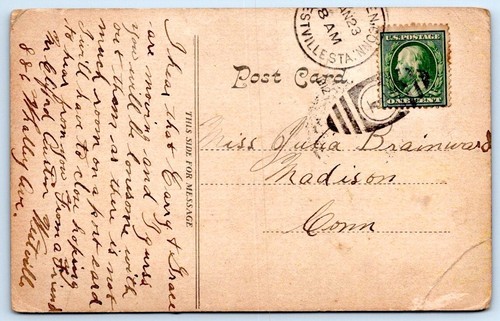 I hear that Earry & Grace
are moving and I guess
you will be lonesome with
out them as there is not
much room on a post card
I will have to close hoping
to hear from you From a Friend
Mr Clifford Curtin Westville
886 Whalley Ave.
THIS SIDE FOR MESSAGE
Post Card
JAN 23
8 AM
WESTVILLE STA. CONN.
U.S. POSTAGE
ONE CENT
Miss Julia Brainward
Madison
Conn